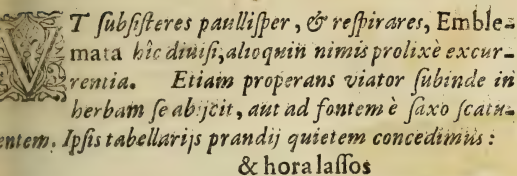 VT subsisteres paullisper, & respirares, Emble-
mata hîc diuisi, alioquin nimis prolixè excur-
rentia. Etiam properans viator subinde in
herbam se abijcit, aut ad fontem è saxo scatu-
entem. Ipsis tabellarijs prandij quietem concedimus:
& hora lassos